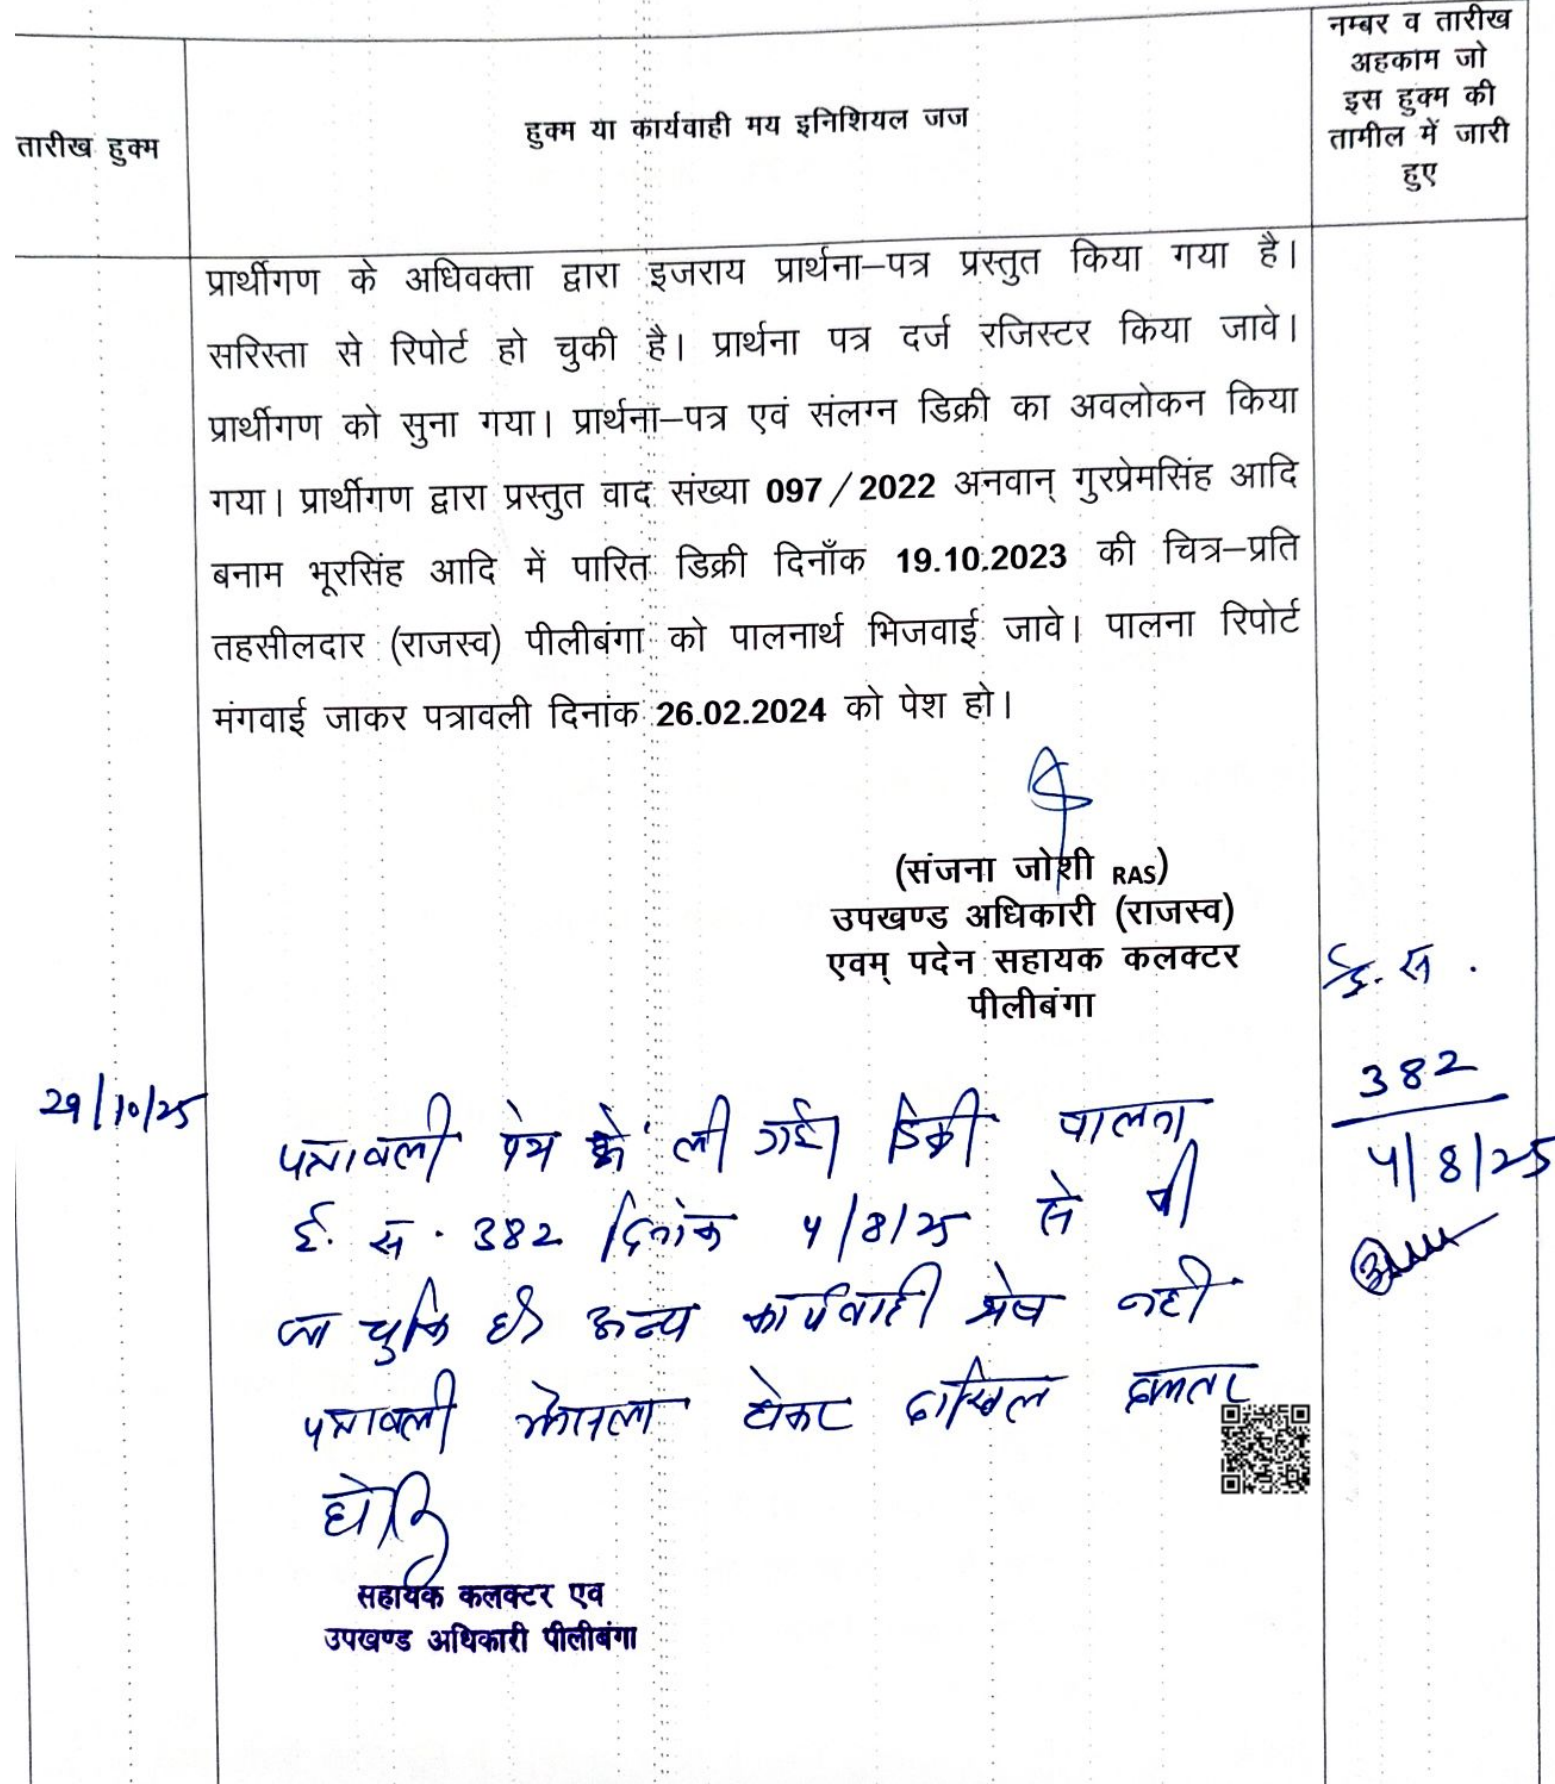 तारीख हुक्म
हुक्म या कार्यवाही मय इनिशियल जज
नम्बर व तारीख
अहकाम जो
इस हुक्म की
तामील में जारी
हुए
प्रार्थीगण के अधिवक्ता द्वारा इजराय प्रार्थना–पत्र प्रस्तुत किया गया है।
सरिस्ता से रिपोर्ट हो चुकी है। प्रार्थना पत्र दर्ज रजिस्टर किया जावे।
प्रार्थीगण को सुना गया। प्रार्थना–पत्र एवं संलग्न डिक्री का अवलोकन किया
गया। प्रार्थीगण द्वारा प्रस्तुत वाद संख्या 097/2022 अनवान् गुरप्रेमसिंह आदि
बनाम भूरसिंह आदि में पारित डिक्री दिनाँक 19.10.2023 की चित्र–प्रति
तहसीलदार (राजस्व) पीलीबंगा को पालनार्थ भिजवाई जावे। पालना रिपोर्ट
मंगवाई जाकर पत्रावली दिनांक 26.02.2024 को पेश हो।
(संजना जोशी RAS)
उपखण्ड अधिकारी (राजस्व)
एवम् पदेन सहायक कलक्टर
पीलीबंगा
इ. स.
382
4/8/25
29/10/25
पत्रावली पेश ली गई। डिक्री पालना
इ. स. 382 दिनांक 4/8/25 से की
जा चुकि है। अन्य कार्यवाही शेष नही
पत्रावली फैसला होकर दाखिल दफ्तर
हो।
सहायक कलक्टर एव
उपखण्ड अधिकारी पीलीबंगा